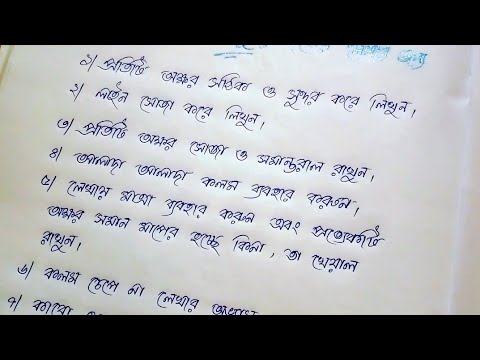 ১/ প্রতিটি অক্ষর সঠিক ও সুন্দর করে লিখুন।
২/ লাইন সোজা করে লিখুন।
৩/ প্রতিটি অক্ষর সোজা ও সমান্তরাল রাখুন।
৪/ আলাদা আলাদা কলম ব্যবহার করুন।
৫/ লেখায় মাত্রা ব্যবহার করুন এবং প্রত্যেকটি
অক্ষর সমান মাপের হচ্ছে কিনা, তা খেয়াল
রাখুন।
৬/ কলম চেপে না লেখার
৭/